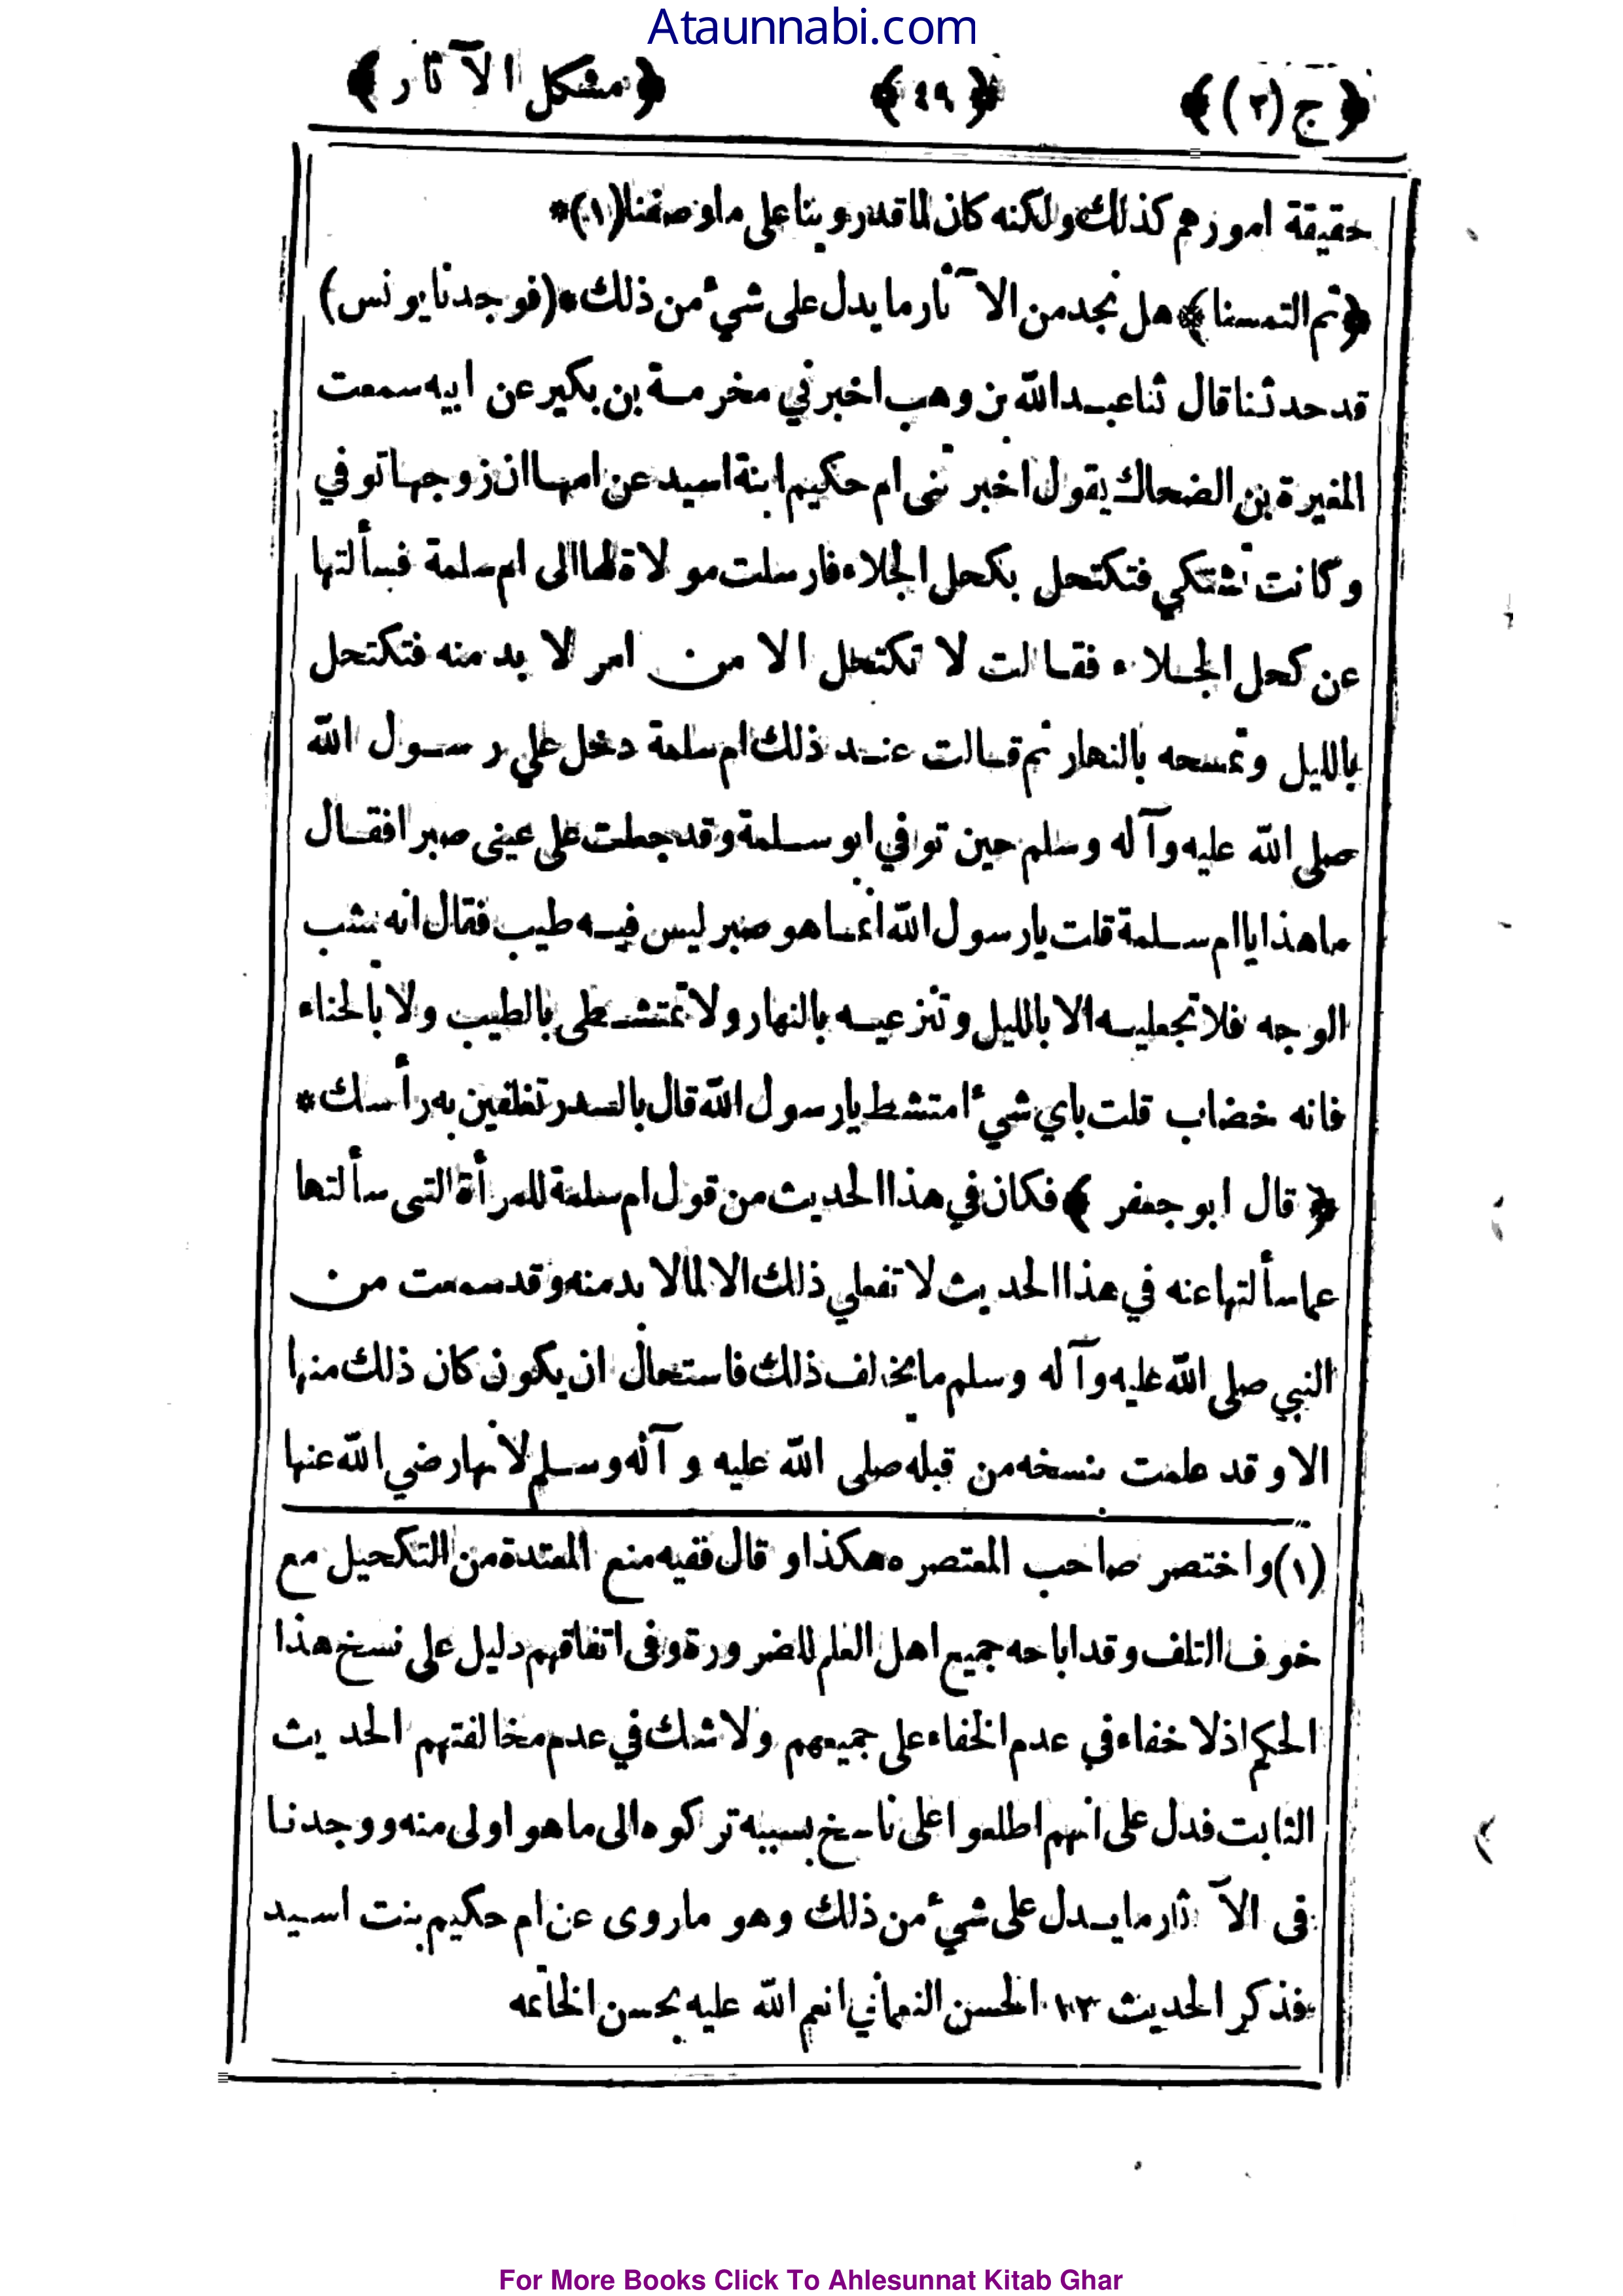 Ataunnabi.com
﴿ج (٢)﴾ ﴿٤٩﴾ ﴿مشكل الآثار﴾
حقيقة امورهم كذلك ولكنه كان لما قدروينا على ما وصفنا(١)*
﴿ثم التمسنا﴾ هل نجد من الآثار ما يدل على شيء من ذلك*(فوجدنا يونس)
قد حدثنا قال ثنا عبد الله بن وهب اخبرني مخرمة بن بكير عن ابيه سمعت
المغيرة بن الضحاك يقول اخبرتنى ام حكيم ابنة اسيد عن امها ان زوجها توفي
وكانت تشتكي فتكتحل بكحل الجلاء فارسلت مولاة لها الى ام سلمة فسألتها
عن كحل الجلاء فقالت لا تكتحل الا من امر لا بد منه فتكتحل
بالليل وتمسحه بالنهار ثم قالت عند ذلك ام سلمة دخل علي رسول الله
صلى الله عليه وآله وسلم حين توفي ابو سلمة وقد جعلت على عينى صبرا فقال
ما هذا يا ام سلمة قلت يا رسول الله انما هو صبر ليس فيه طيب فقال انه يشب
الوجه فلا تجعليه الا بالليل وتنزعيه بالنهار ولا تمتشطى بالطيب ولا بالحناء
فانه خضاب قلت باي شيء امتشط يا رسول الله قال بالسدر تغلفين به رأسك*
﴿قال ابو جعفر﴾ فكان في هذا الحديث من قول ام سلمة للمرأة التى سألتها
عما سألتها عنه في هذا الحديث لا تفعلي ذلك الا لما لا بد منه وقد سمعت من
النبي صلى الله عليه وآله وسلم ما يخالف ذلك فاستحال ان يكون كان ذلك منها
الا وقد علمت بنسخه من قبله صلى الله عليه وآله وسلم لانها رضي الله عنها
(١) واختصر صاحب المعتصر ه هكذا وقال ففيه منع المعتدة من التكحيل مع
خوف التلف وقد اباحه جميع اهل العلم للضرورة وفى اتفاقهم دليل على نسخ هذا
الحكم اذ لا خفاء في عدم الخفاء على جميعهم ولا شك في عدم مخالفتهم الحديث
الثابت فدل على انهم اطلعوا على ناسخ بسببه تركوه الى ما هو اولى منه ووجدنا
فى الآثار ما يدل على شيء من ذلك وهو ما روى عن ام حكيم بنت اسيد
فذكر الحديث ١٢ الحسن النعماني انعم الله عليه بحسن الخاتمه
For More Books Click To Ahlesunnat Kitab Ghar